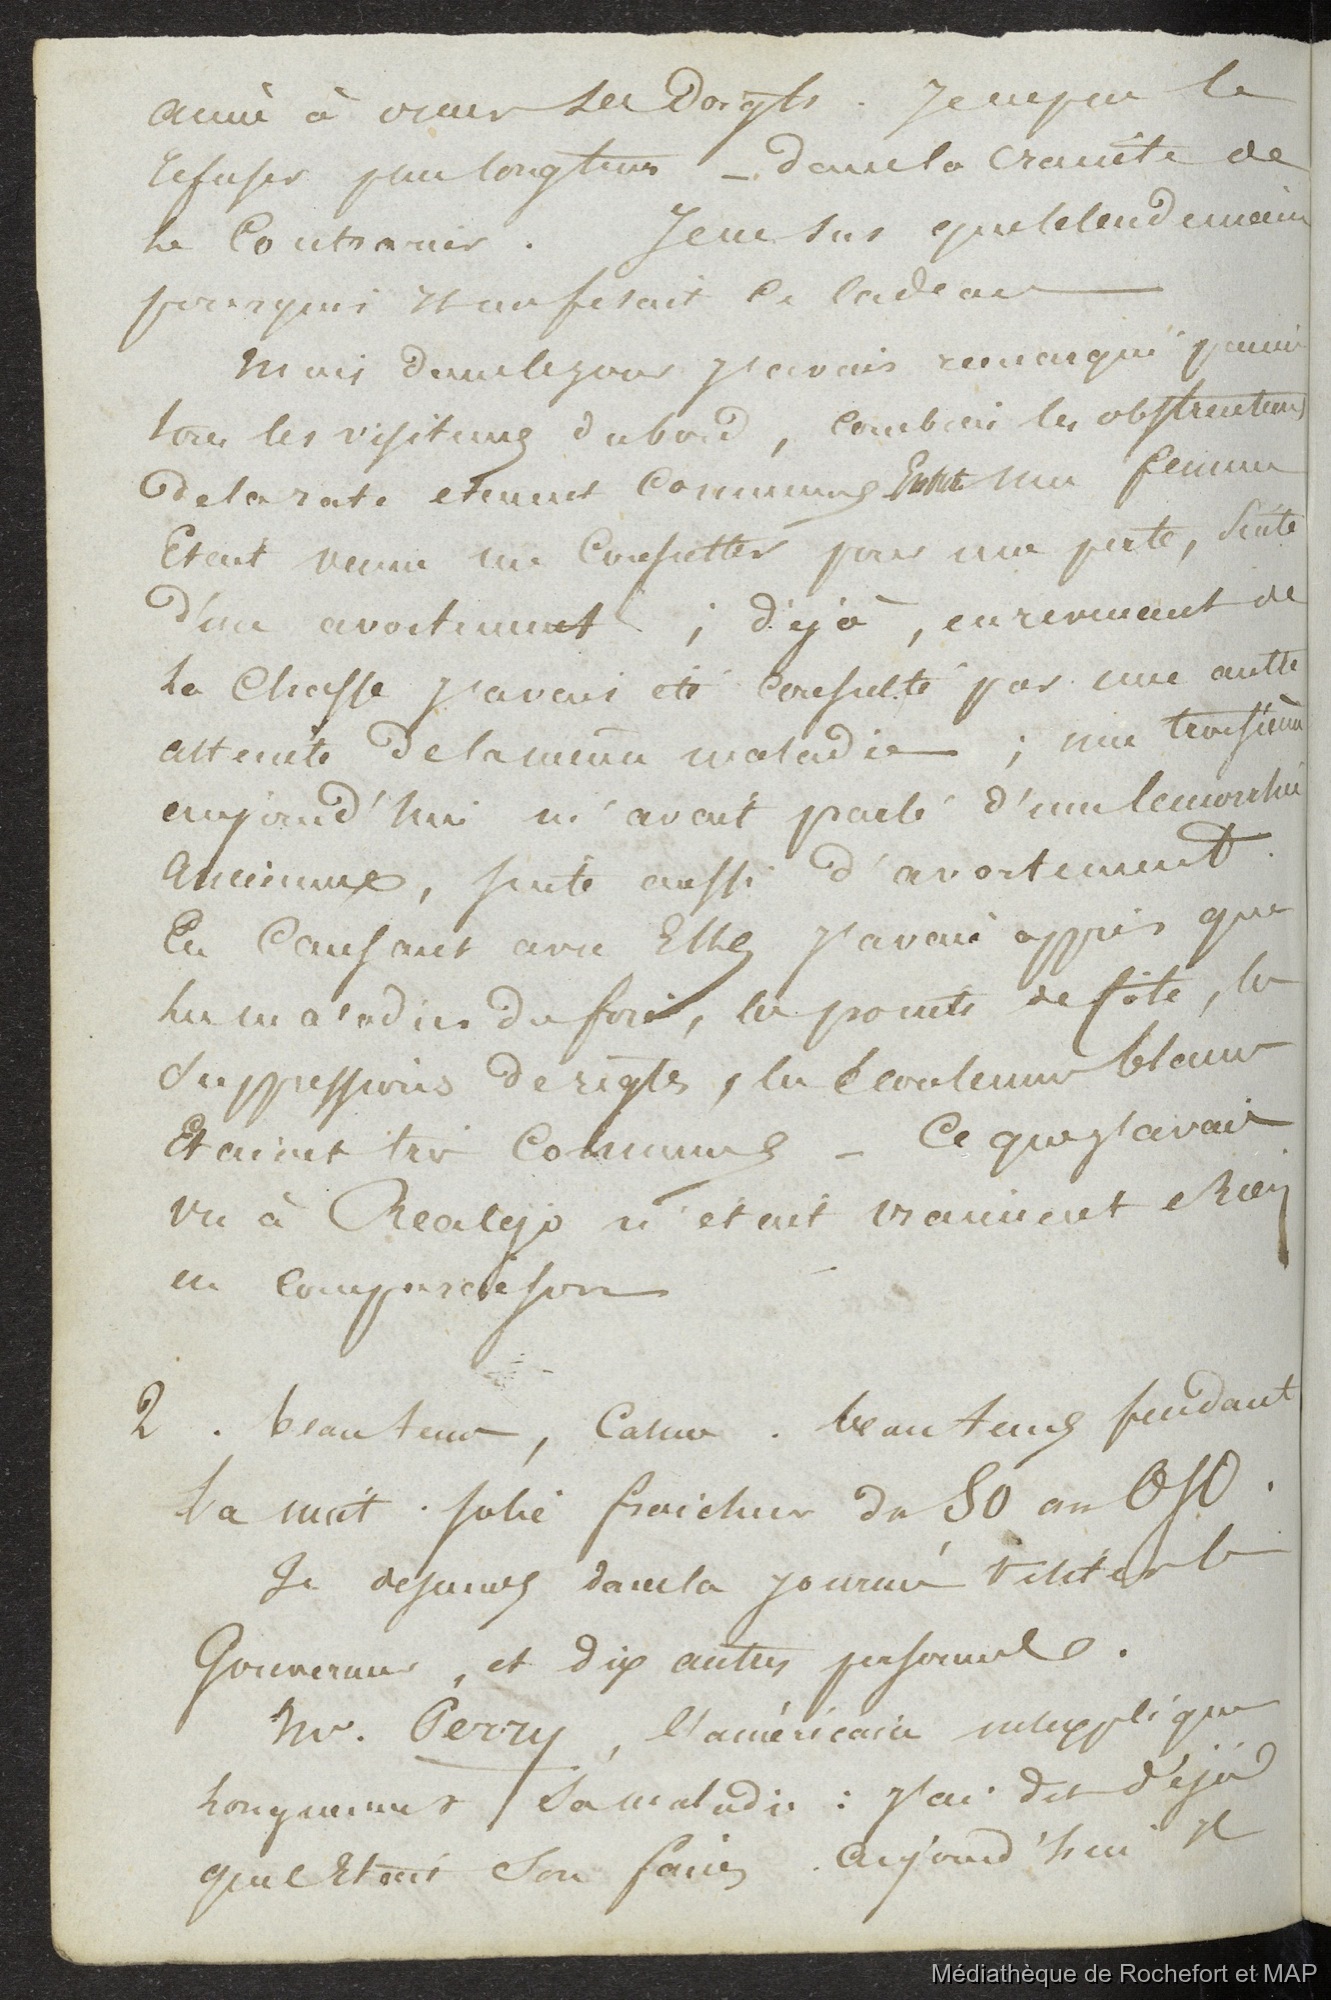 aimé à orner ses Doigts. Je ne pus le
refuser plus longtems _ dans la crainte de
le Contrarier. Je ne sus que le lendemain
pourquoi il me fesait ce cadeau
Mais dans le jour j'avais remarqué parmi
tous les visiteurs du bord, combien les obstructions
de la rate étaient communes une femme
Etait venue me Consulter pour une perte, suite
d'un avortement ; déjà, en revenant de
la Chasse j'avais été consulté par une autre
atteinte de la même maladie ; une troisième
aujourd'hui m'avait parlé d'une leucorrhée
Ancienne, suite aussi d'avortement.
En Causant avec Elles j'avais appris que
les maladies du foie, les points de côté, les
Suppressions de règles, les écoulemens blancs
Etaient très Communes _ Ce que j'avais
vu à Realejo n'était vraiment rien
en comparaison
2. beau tems, Calme. beau tems pendant
la nuit. jolie fraicheur du SO au OSO.
Je descends dans la journée visiter le
Gouverneur, et dix autres personnes.
Mr. Perry, l'américain m'explique
longuement sa maladie : j'ai dit déjà
quel Etait son faciès. Aujourd'hui il
Médiathèque de Rochefort et MAP